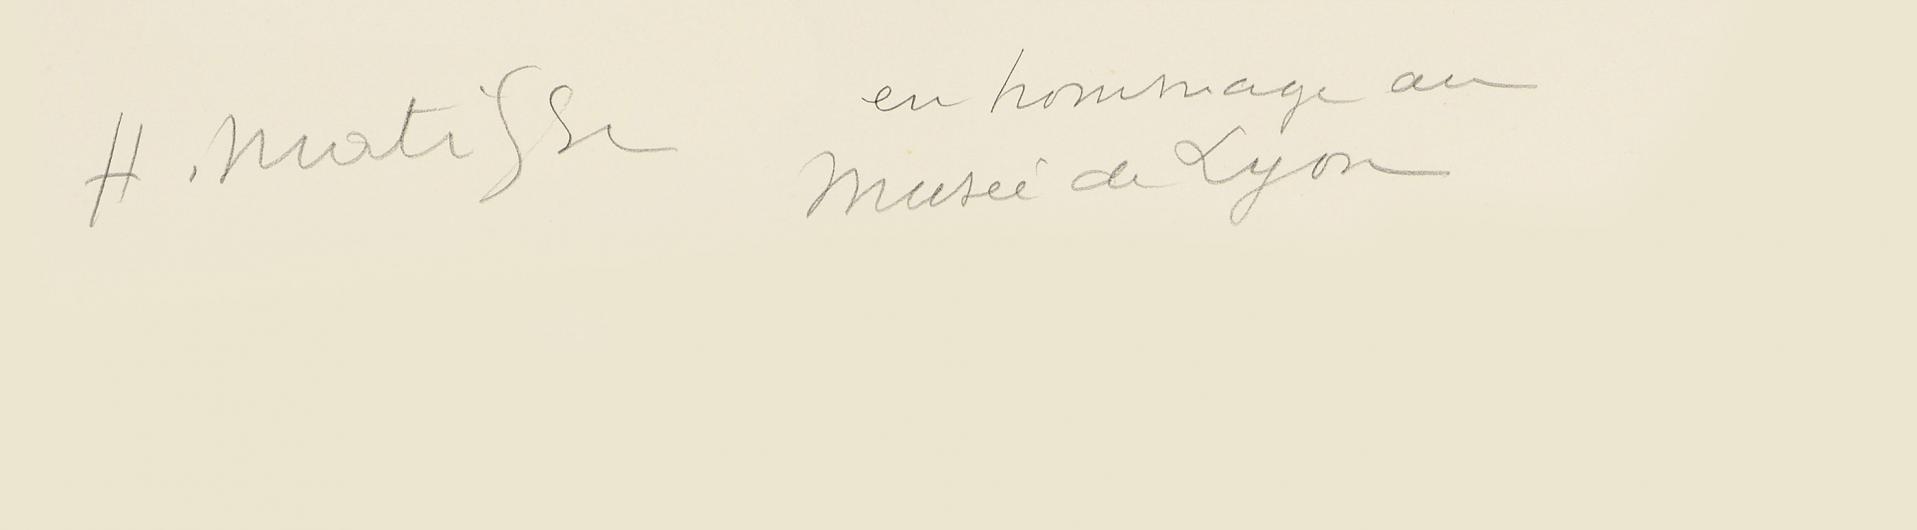 H. Matisse
en hommage au
Musée de Lyon